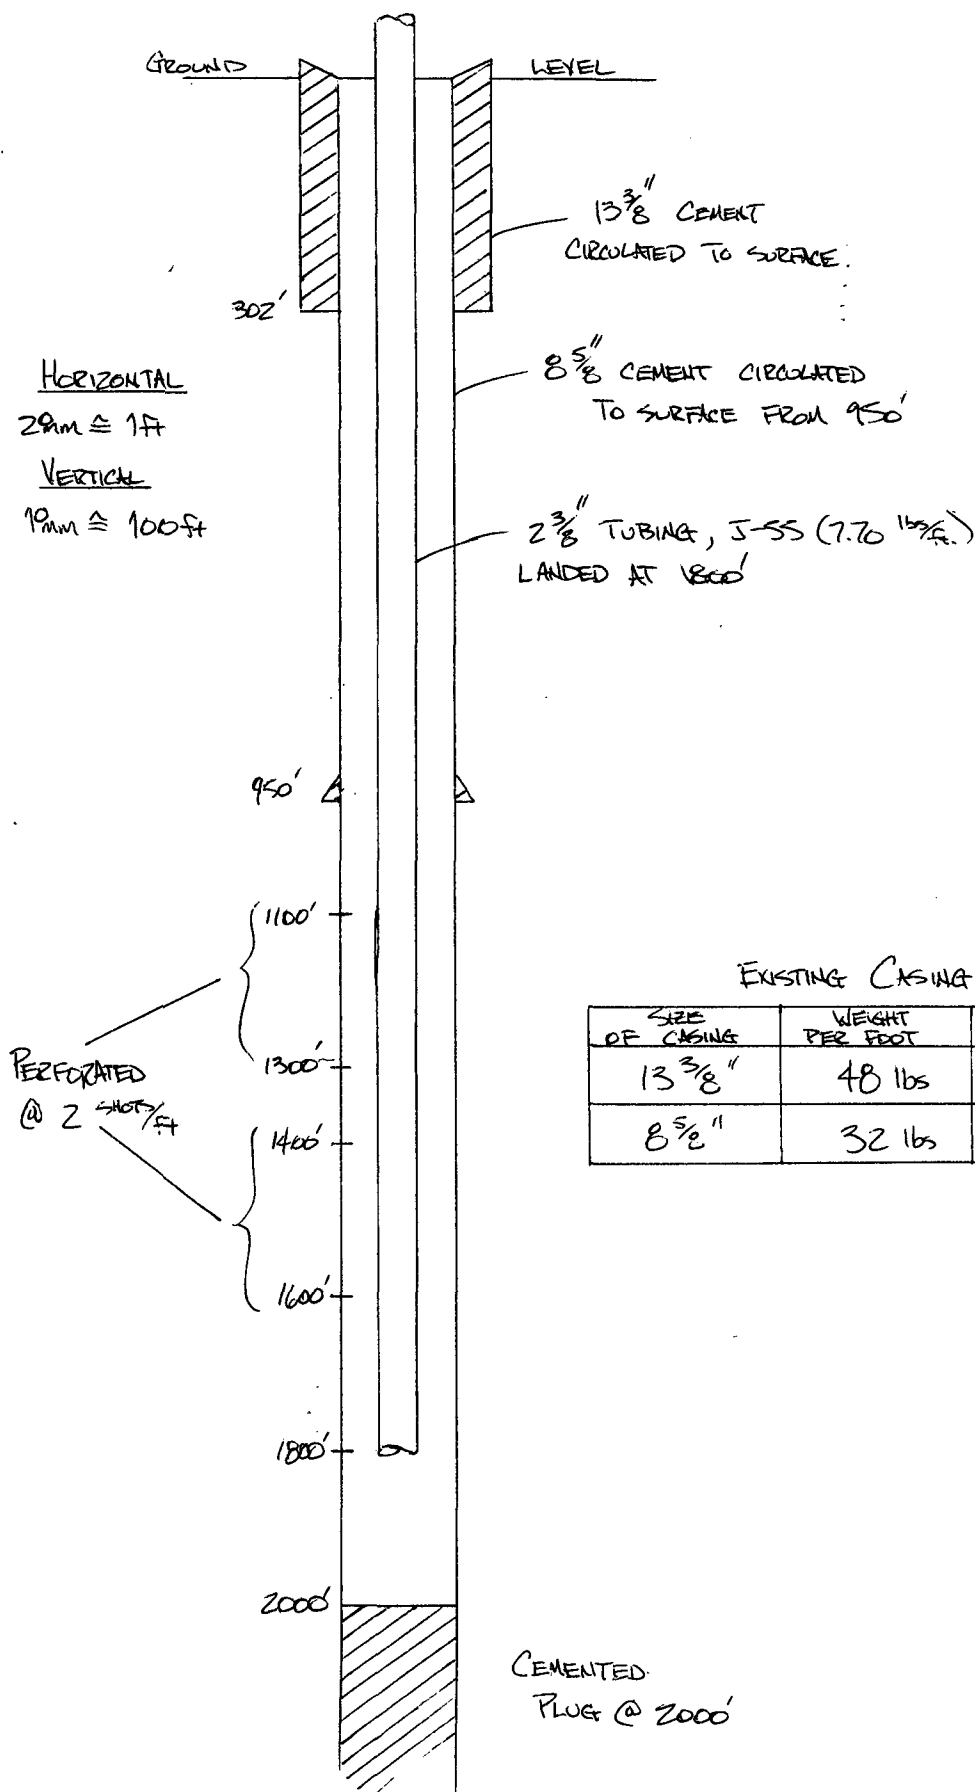 GROUND
LEVEL
13 3/8" CEMENT
CIRCULATED TO SURFACE.
302'
HORIZONTAL
20mm ≙ 1ft
VERTICAL
10mm ≙ 100ft
8 5/8" CEMENT CIRCULATED
TO SURFACE FROM 950'
2 3/8" TUBING, J-55 (7.70 lbs/ft.)
LANDED AT 1800'
950'
1100'
1300'
PERFORATED
@ 2 SHOTS/ft
1400'
1600'
EXISTING CASING
SIZE OF CASING WEIGHT PER FOOT
13 3/8" 48 lbs
8 5/8" 32 lbs
1800'
2000'
CEMENTED
PLUG @ 2000'